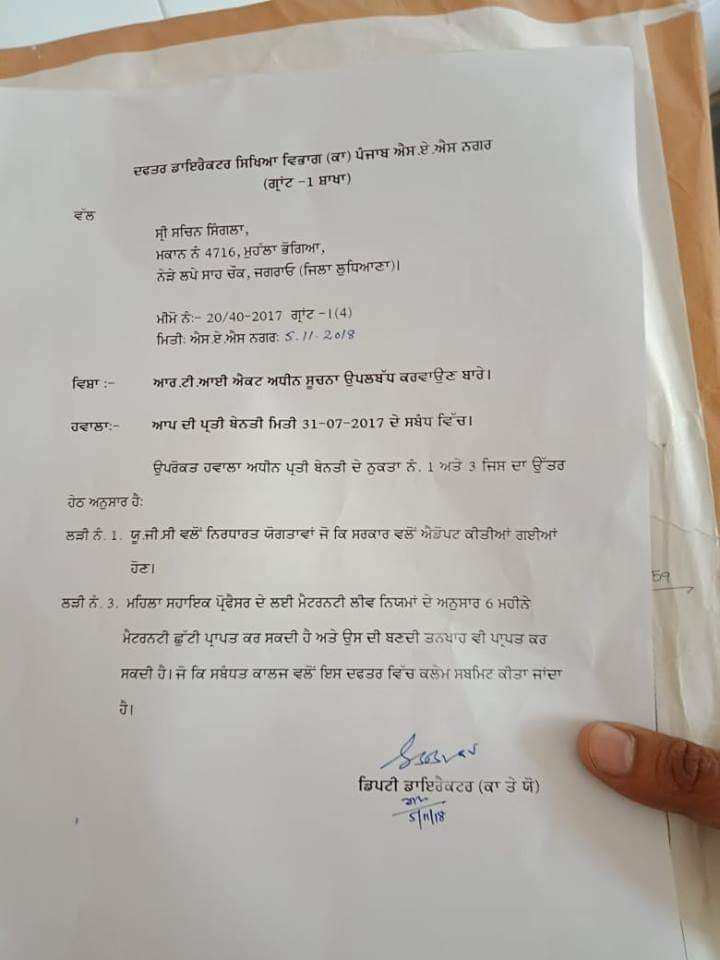 ਦਫਤਰ ਡਾਇਰੈਕਟਰ ਸਿਖਿਆ ਵਿਭਾਗ (ਕਾ) ਪੰਜਾਬ ਐਸ.ਏ.ਐਸ ਨਗਰ
(ਗ੍ਰਾਂਟ -1 ਸ਼ਾਖਾ)
ਵੱਲ
ਸ੍ਰੀ ਸਚਿਨ ਸਿੰਗਲਾ,
ਮਕਾਨ ਨੰ 4716, ਮੁਹੱਲਾ ਭੋਗਿਆ,
ਨੇੜੇ ਲਪੇ ਸਾਹ ਚੌਕ, ਜਗਰਾਓ (ਜਿਲਾ ਲੁਧਿਆਣਾ)।
ਮੀਮੋ ਨੰ:- 20/40-2017 ਗ੍ਰਾਂਟ -1(4)
ਮਿਤੀ: ਐਸ.ਏ.ਐਸ ਨਗਰ: 5.11.2018
ਵਿਸ਼ਾ :- ਆਰ.ਟੀ.ਆਈ ਐਕਟ ਅਧੀਨ ਸੂਚਨਾ ਉਪਲਬੱਧ ਕਰਵਾਉਣ ਬਾਰੇ।
ਹਵਾਲਾ:- ਆਪ ਦੀ ਪ੍ਰਤੀ ਬੇਨਤੀ ਮਿਤੀ 31-07-2017 ਦੇ ਸਬੰਧ ਵਿੱਚ।
ਉਪਰੋਕਤ ਹਵਾਲਾ ਅਧੀਨ ਪ੍ਰਤੀ ਬੇਨਤੀ ਦੇ ਨੁਕਤਾ ਨੰ. 1 ਅਤੇ 3 ਜਿਸ ਦਾ ਉੱਤਰ
ਹੇਠ ਅਨੁਸਾਰ ਹੈ:
ਲੜੀ ਨੰ. 1. ਯੂ.ਜੀ.ਸੀ ਵਲੋਂ ਨਿਰਧਾਰਤ ਯੋਗਤਾਵਾਂ ਜੋ ਕਿ ਸਰਕਾਰ ਵਲੋਂ ਐਡੋਪਟ ਕੀਤੀਆਂ ਗਈਆਂ
ਹੋਣ।
ਲੜੀ ਨੰ. 3. ਮਹਿਲਾ ਸਹਾਇਕ ਪ੍ਰੋਫੈਸਰ ਦੇ ਲਈ ਮੈਟਰਨਟੀ ਲੀਵ ਨਿਯਮਾਂ ਦੇ ਅਨੁਸਾਰ 6 ਮਹੀਨੇ
ਮੈਟਰਨਟੀ ਛੁੱਟੀ ਪ੍ਰਾਪਤ ਕਰ ਸਕਦੀ ਹੈ ਅਤੇ ਉਸ ਦੀ ਬਣਦੀ ਤਨਖਾਹ ਵੀ ਪ੍ਰਾਪਤ ਕਰ
ਸਕਦੀ ਹੈ। ਜੋ ਕਿ ਸਬੰਧਤ ਕਾਲਜ ਵਲੋਂ ਇਸ ਦਫਤਰ ਵਿੱਚ ਕਲੇਮ ਸਬਮਿਟ ਕੀਤਾ ਜਾਂਦਾ
ਹੈ।
ਡਿਪਟੀ ਡਾਇਰੈਕਟਰ (ਕਾ ਤੇ ਯੋ)
5/11/18
59